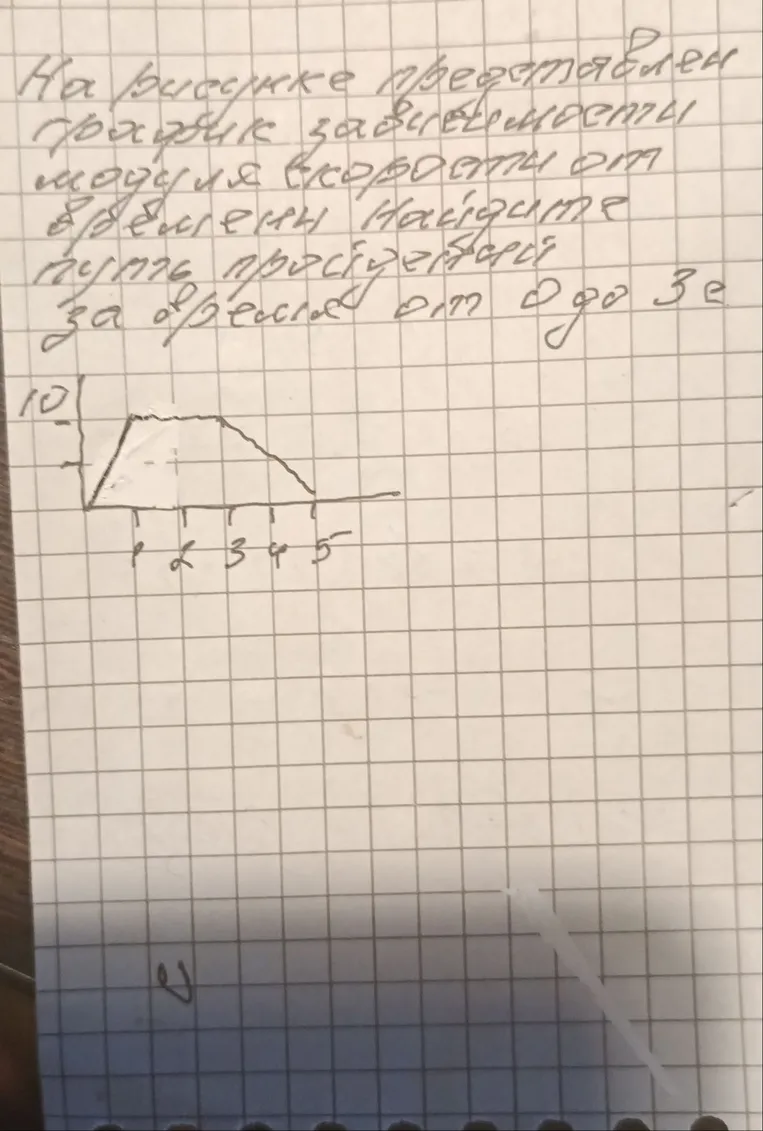 На рисунке представлен
график зависимости
модуля скорости от
времени Найдите
путь пройденный
за время от 0 до 3 с
10
1 2 3 4 5